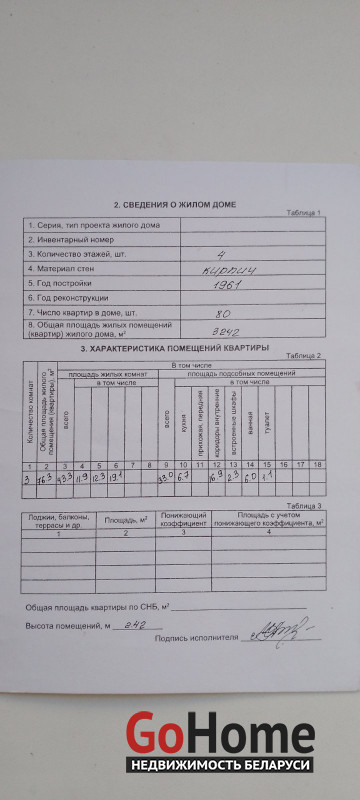 2. СВЕДЕНИЯ О ЖИЛОМ ДОМЕ
Таблица 1
1. Серия, тип проекта жилого дома
2. Инвентарный номер
3. Количество этажей, шт. 4
4. Материал стен кирпич
5. Год постройки 1961
6. Год реконструкции
7. Число квартир в доме, шт. 80
8. Общая площадь жилых помещений
(квартир) жилого дома, м² 3242
3. ХАРАКТЕРИСТИКА ПОМЕЩЕНИЙ КВАРТИРЫ
Таблица 2
Количество комнат
Общая площадь жилого
помещения (квартиры), м²
В том числе
площадь жилых комнат
площадь подсобных помещений
всего
в том числе
всего
в том числе
кухня
прихожая, передняя
коридоры внутренние
встроенные шкафы
ванная
туалет
1 2 3 4 5 6 7 8 9 10 11 12 13 14 15 16 17 18
3 76.3 43.3 11.9 12.3 19.1 33.0 6.7 16.9 2.3 6.0 1.1
Таблица 3
Лоджии, балконы,
террасы и др.
Площадь, м²
Понижающий
коэффициент
Площадь с учетом
понижающего коэффициента, м²
1 2 3 4
Общая площадь квартиры по СНБ, м²
Высота помещений, м 242
Подпись исполнителя
GoHome
НЕДВИЖИМОСТЬ БЕЛАРУСИ